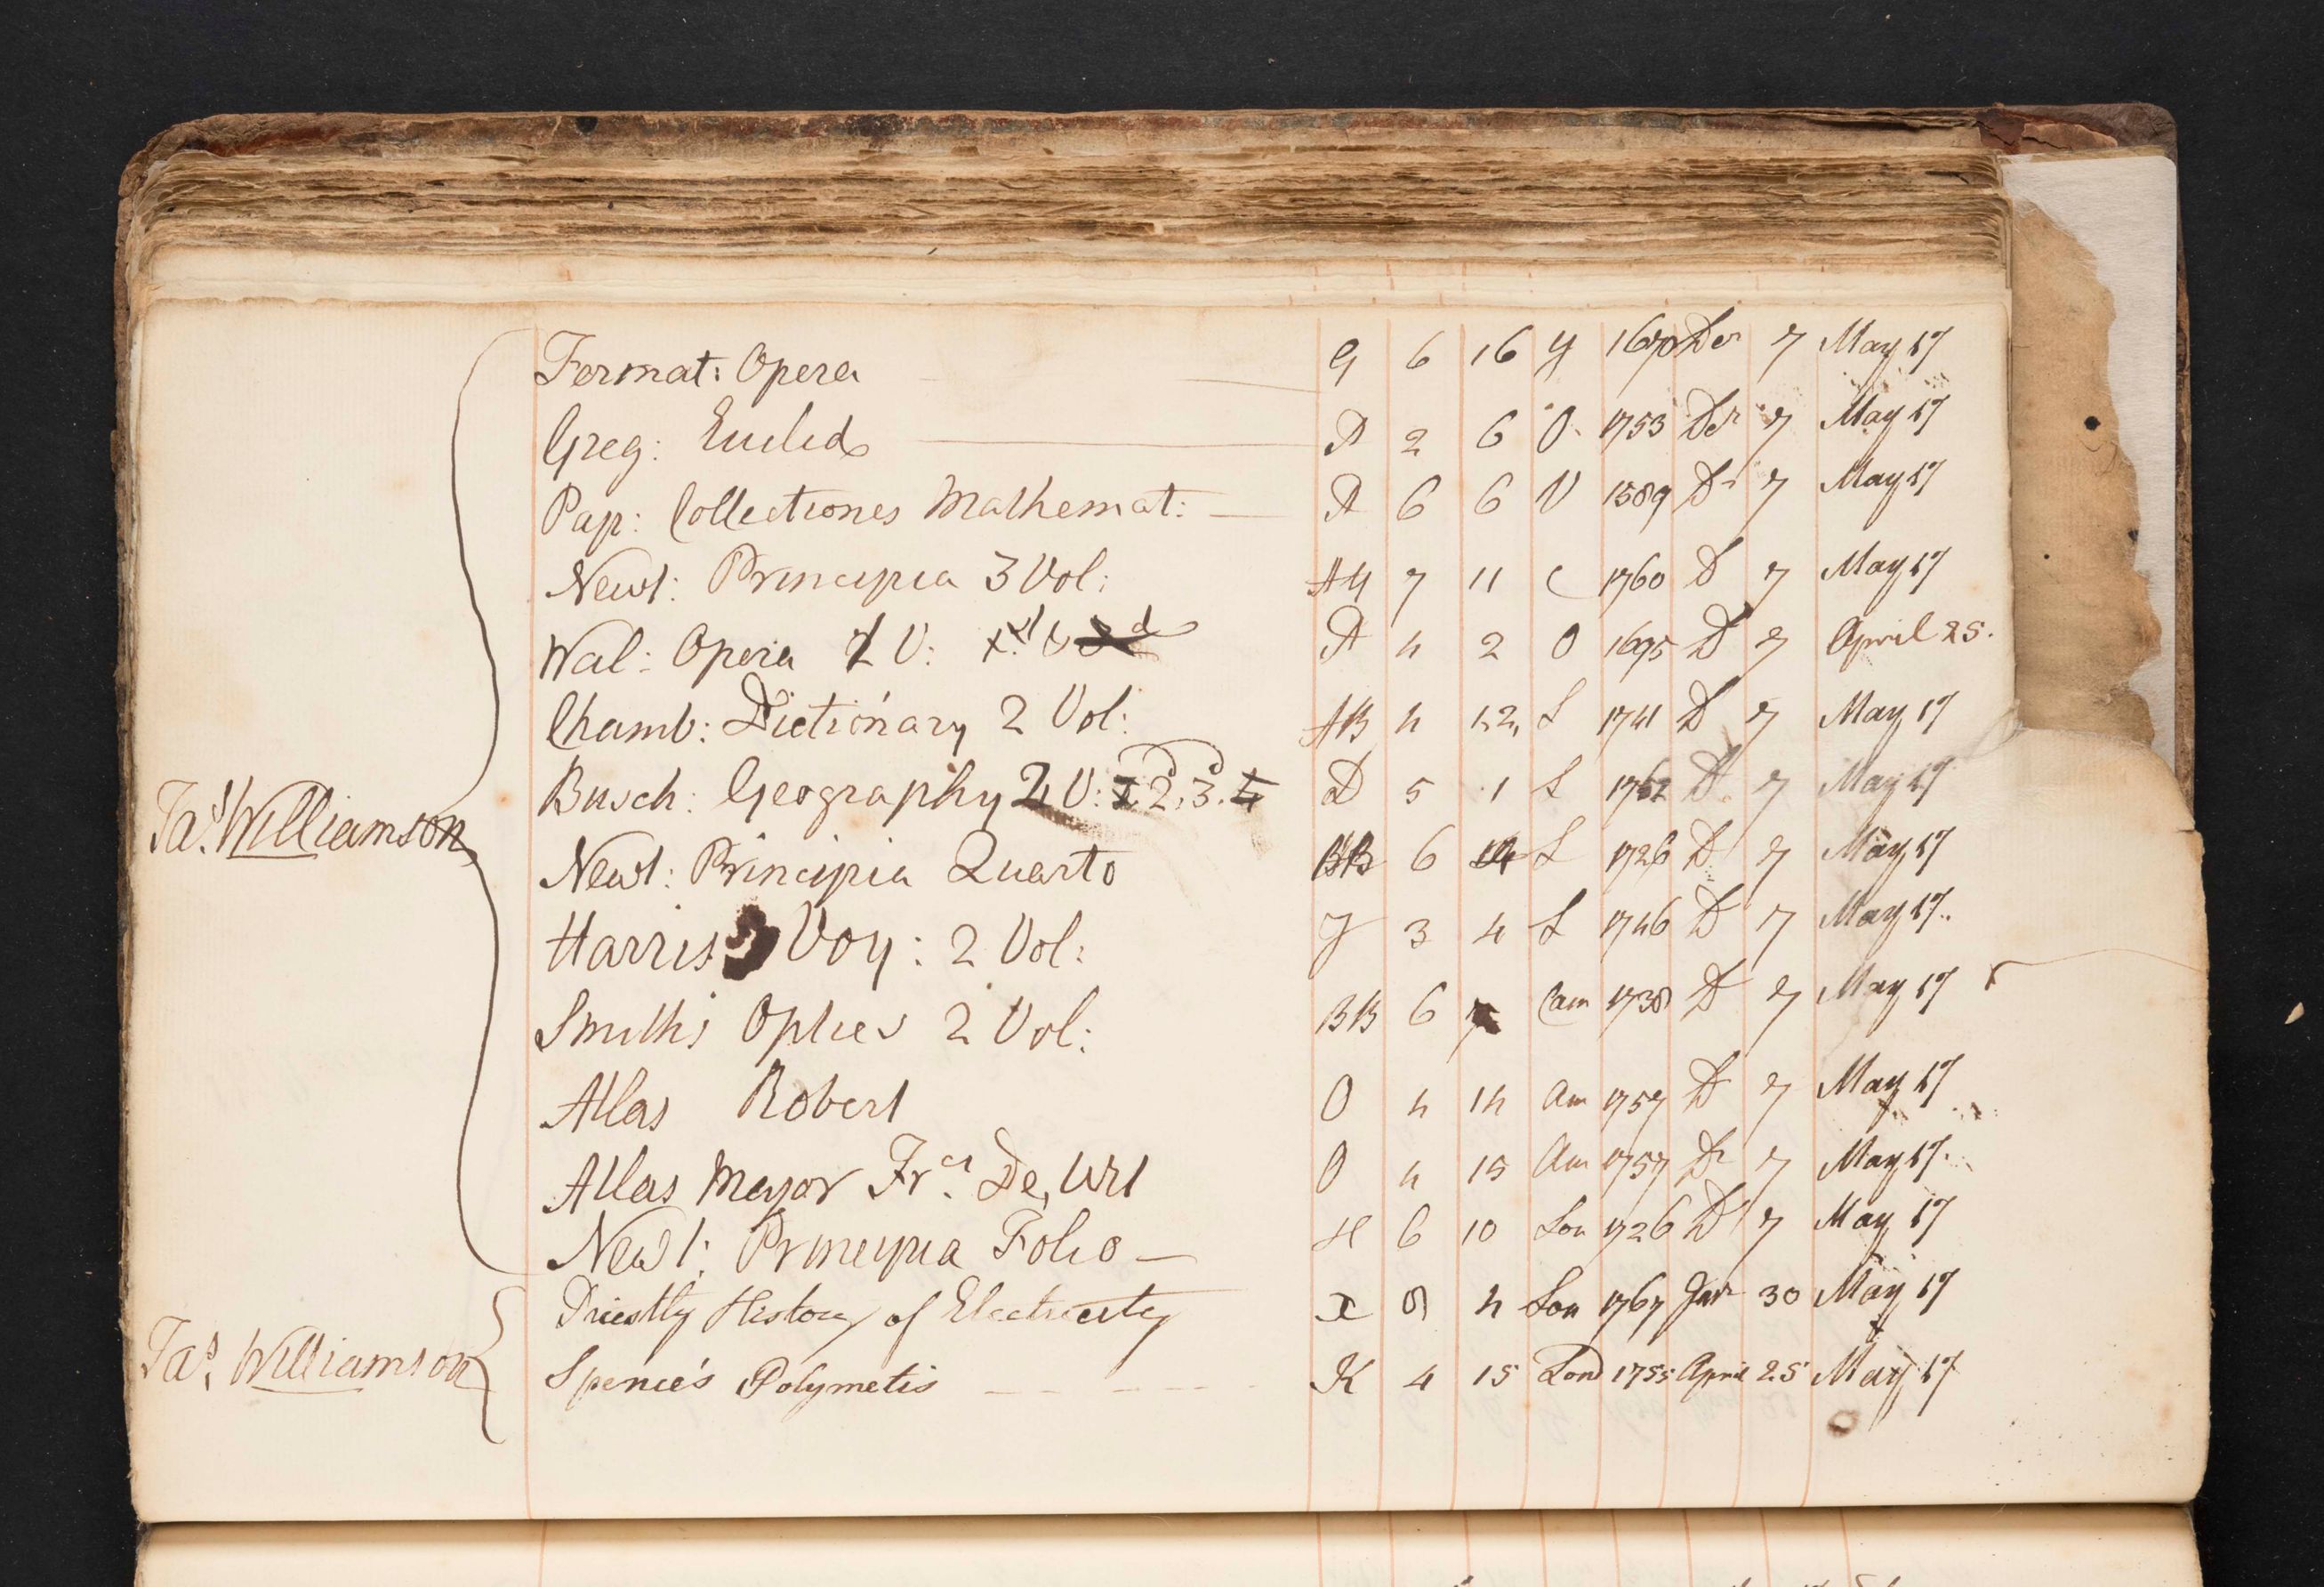 Fermat: Opera G 6 16 1670 Der 7 May 17
Greg: Euclid A 2 6 O. 1753 Der 7 May 17
Pap: Collectiones Mathemat: A 6 6 V 1589 Dr 7 May 17
Newt: Principia 3 Vol: 7 11 C 1760 D 7 May 17
Wal: Opera V: A 4 2 O 1695 D 7 April 25.
Chamb: Dictionary 2 Vol: AB 4 12, L 1741 D 7 May 17
Busch: Geography V: 1. 2. 3. 4 D 5 1 L 1762 D 7 May 17
Jas. Williamson
Newt: Principia Quarto BB 6 14 L 1726 D 7 May 17
Harris Voy: 2 Vol: 3 4 L 1746 D 7 May 17.
Smith's Optics 2 Vol: BB 6 Cam 1738 D 7 May 17
Atlas Robert O 4 14 Am 1757 D 7 May 17
Atlas Major Frcs. De Wit O 4 15 Am 1757 Dr 7 May 17.
Newt: Principia Folio H 6 10 Lon 1726 D 7 May 17
Priestly History of Electricity X 8 4 Lon 1767 Janr 30 May 17
Jas. Williamson
Spence's Polymetis K 4 15 Lond 1755 April 25 May 17